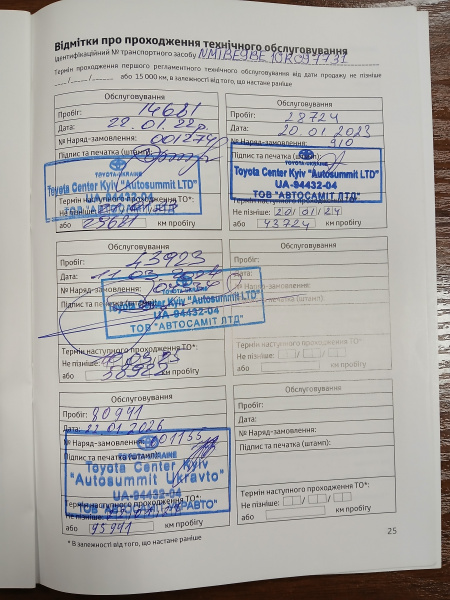 Відмітки про проходження технічного обслуговування
Ідентифікаційний № транспортного засобу
Термін проходження першого регламентного технічного обслуговування від дати продажу не пізніше
або 15 000 км, в залежності від того, що настане раніше
Обслуговування
Пробіг: 14681
Дата: 22.01.22р.
№ Наряд-замовлення: 001274
Підпис та печатка (штамп):
TOYOTA-UKRAINE
Toyota Center Kyiv "Autosummit LTD"
UA-94432-04
ТОВ "АВТОСАМІТ ЛТД"
Термін наступного проходження ТО*:
Не пізніше:
або 29681 км пробігу
Обслуговування
Пробіг: 28724
Дата: 20.01.2023
№ Наряд-замовлення: 910
Підпис та печатка (штамп):
TOYOTA-UKRAINE
Toyota Center Kyiv "Autosummit LTD"
UA-94432-04
ТОВ "АВТОСАМІТ ЛТД"
Термін наступного проходження ТО*:
Не пізніше: 20/01/24
або 43724 км пробігу
Обслуговування
Пробіг: 43923
Дата: 11.03.2024
№ Наряд-замовлення:
Підпис та печатка
TOYOTA-UKRAINE
Toyota Center Kyiv "Autosummit LTD"
UA-94432-04
ТОВ "АВТОСАМІТ ЛТД"
Термін наступного проходження ТО*:
Не пізніше:
або 58923 км пробігу
Обслуговування
Пробіг:
Дата:
№ Наряд-замовлення:
Підпис та печатка (штамп):
Термін наступного проходження ТО*:
Не пізніше:
або км пробігу
Обслуговування
Пробіг: 80941
Дата: 22.01.2026
№ Наряд-замовлення: 001155
Підпис та печатка
TOYOTA-UKRAINE
Toyota Center Kyiv
"Autosummit Ukravto"
UA-94432-04
ТОВ "АВТОСАМІТ УКРАВТО"
Термін наступного проходження ТО*:
Не пізніше:
або 95941 км пробігу
Обслуговування
Пробіг:
Дата:
№ Наряд-замовлення:
Підпис та печатка (штамп):
Термін наступного проходження ТО*:
Не пізніше:
або км пробігу
* В залежності від того, що настане раніше
25